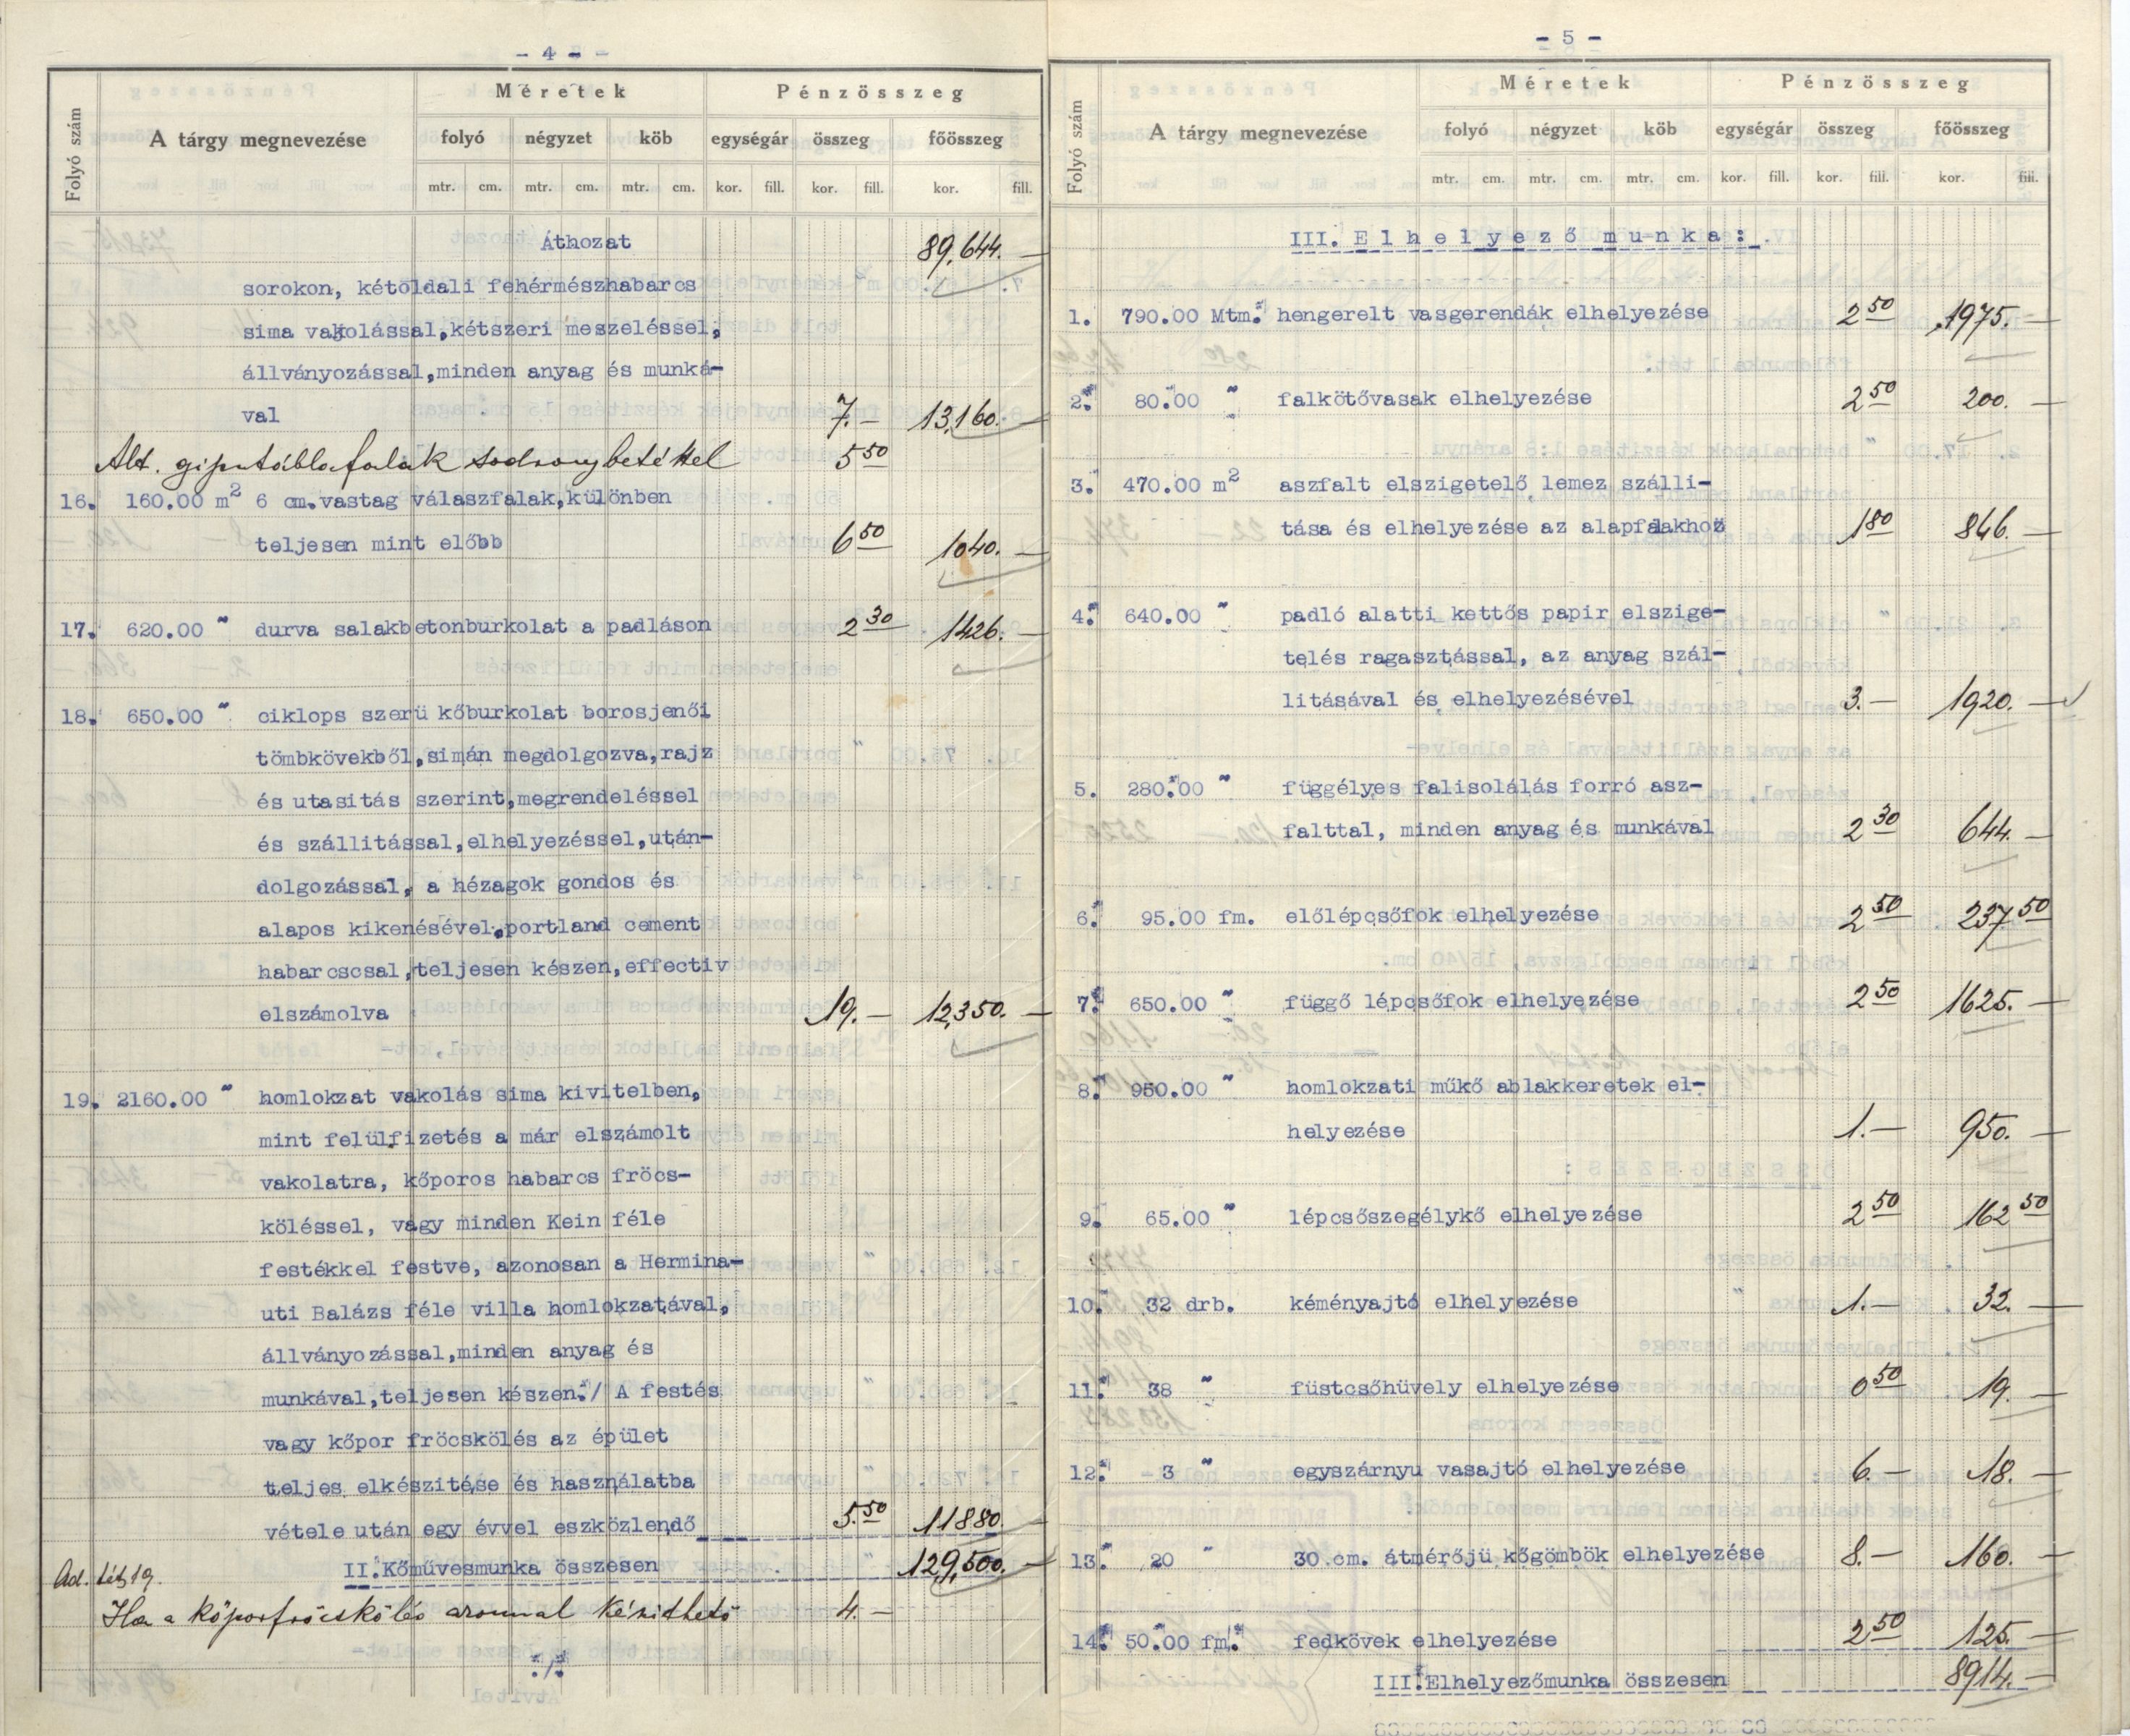 - 4 -
Folyó szám
A tárgy megnevezése
Méretek
Pénzösszeg
folyó négyzet köb egységár összeg főösszeg
mtr. cm. mtr. cm. mtr. cm. kor. fill. kor. fill. kor. fill.
Áthozat 89,644.—
sorokon, kétoldali fehérmészhabarcs
sima vakolással,kétszeri meszeléssel,
állványozással,minden anyag és munká-
val 7.— 13,160.—
Alt. gipsztáblafalak sodronybetéttel 5 50
16. 160.00 m2 6 cm.vastag válaszfalak,különben
teljesen mint előbb 6 50 1040.—
17. 620.00 " durva salakbetonburkolat a padláson 2 30 1426.—
18. 650.00 " ciklops szerü kőburkolat borosjenői
tömbkövekből,simán megdolgozva,rajz
és utasitás szerint,megrendeléssel
és szállitással,elhelyezéssel,után-
dolgozással, a hézagok gondos és
alapos kikenésével,portland cement
habarcscsal,teljesen készen,effectiv
elszámolva 19.— 12,350.—
19. 2160.00 " homlokzat vakolás sima kivitelben,
mint felülfizetés a már elszámolt
vakolatra, kőporos habarcs fröcs-
köléssel, vagy minden Kein féle
festékkel festve, azonosan a Hermina-
uti Balázs féle villa homlokzatával,
állványozással,minden anyag és
munkával,teljesen készen./ A festés
vagy kőpor fröcskölés az épület
teljes elkészitése és használatba
vétele után egy évvel eszközlendő 5.50 11880.
II.Kőművesmunka összesen 129,500.—
Ad. tét 19.
Ha a kőporfröcskölés azonnal készithető 4.—
./.
- 5 -
Folyó szám
A tárgy megnevezése
Méretek
Pénzösszeg
folyó négyzet köb egységár összeg főösszeg
mtr. cm. mtr. cm. mtr. cm. kor. fill. kor. fill. kor. fill.
III. Elhelyező munka:
1. 790.00 Mtm. hengerelt vasgerendák elhelyezése 2 50 1975.—
2. 80.00 " falkötővasak elhelyezése 2 50 200.—
3. 470.00 m2 aszfalt elszigetelő lemez szálli-
tása és elhelyezése az alapfalakhoz 1 80 846.—
4. 640.00 " padló alatti kettős papir elszige-
telés ragasztással, az anyag szál-
litásával és elhelyezésével 3.— 1920.—
5. 280.00 " függélyes falisolálás forró asz-
falttal, minden anyag és munkával 2 30 644.—
6. 95.00 fm. előlépcsőfok elhelyezése 2 50 237.50
7. 650.00 " függő lépcsőfok elhelyezése 2 50 1625.—
8. 950.00 " homlokzati műkő ablakkeretek el-
helyezése 1.— 950.—
9. 65.00 " lépcsőszegélykő elhelyezése 2 50 162 50
10. 32 drb. kéményajtó elhelyezése 1.— 32.—
11. 38 " füstcsőhüvely elhelyezése 0 50 19.—
12. 3 " egyszárnyu vasajtó elhelyezése 6.— 18.—
13. 20 " 30 cm. átmérőjü kőgömbök elhelyezése 8.— 160.—
14. 50.00 fm. fedkövek elhelyezése 2 50 125.—
III.Elhelyezőmunka összesen 8914.—